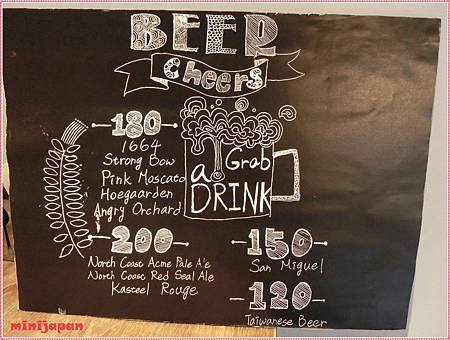 BEER
Cheers
180
1664
Strong Bow
Pink Moscato
Hoegaarden
Angry Orchard
Grab
a
DRINK
200
North Coast Acme Pale A'e
North Coast Red Seal Ale
Kasteel Rouge
150
San Miguel
120
Taiwanese Beer
minijapan